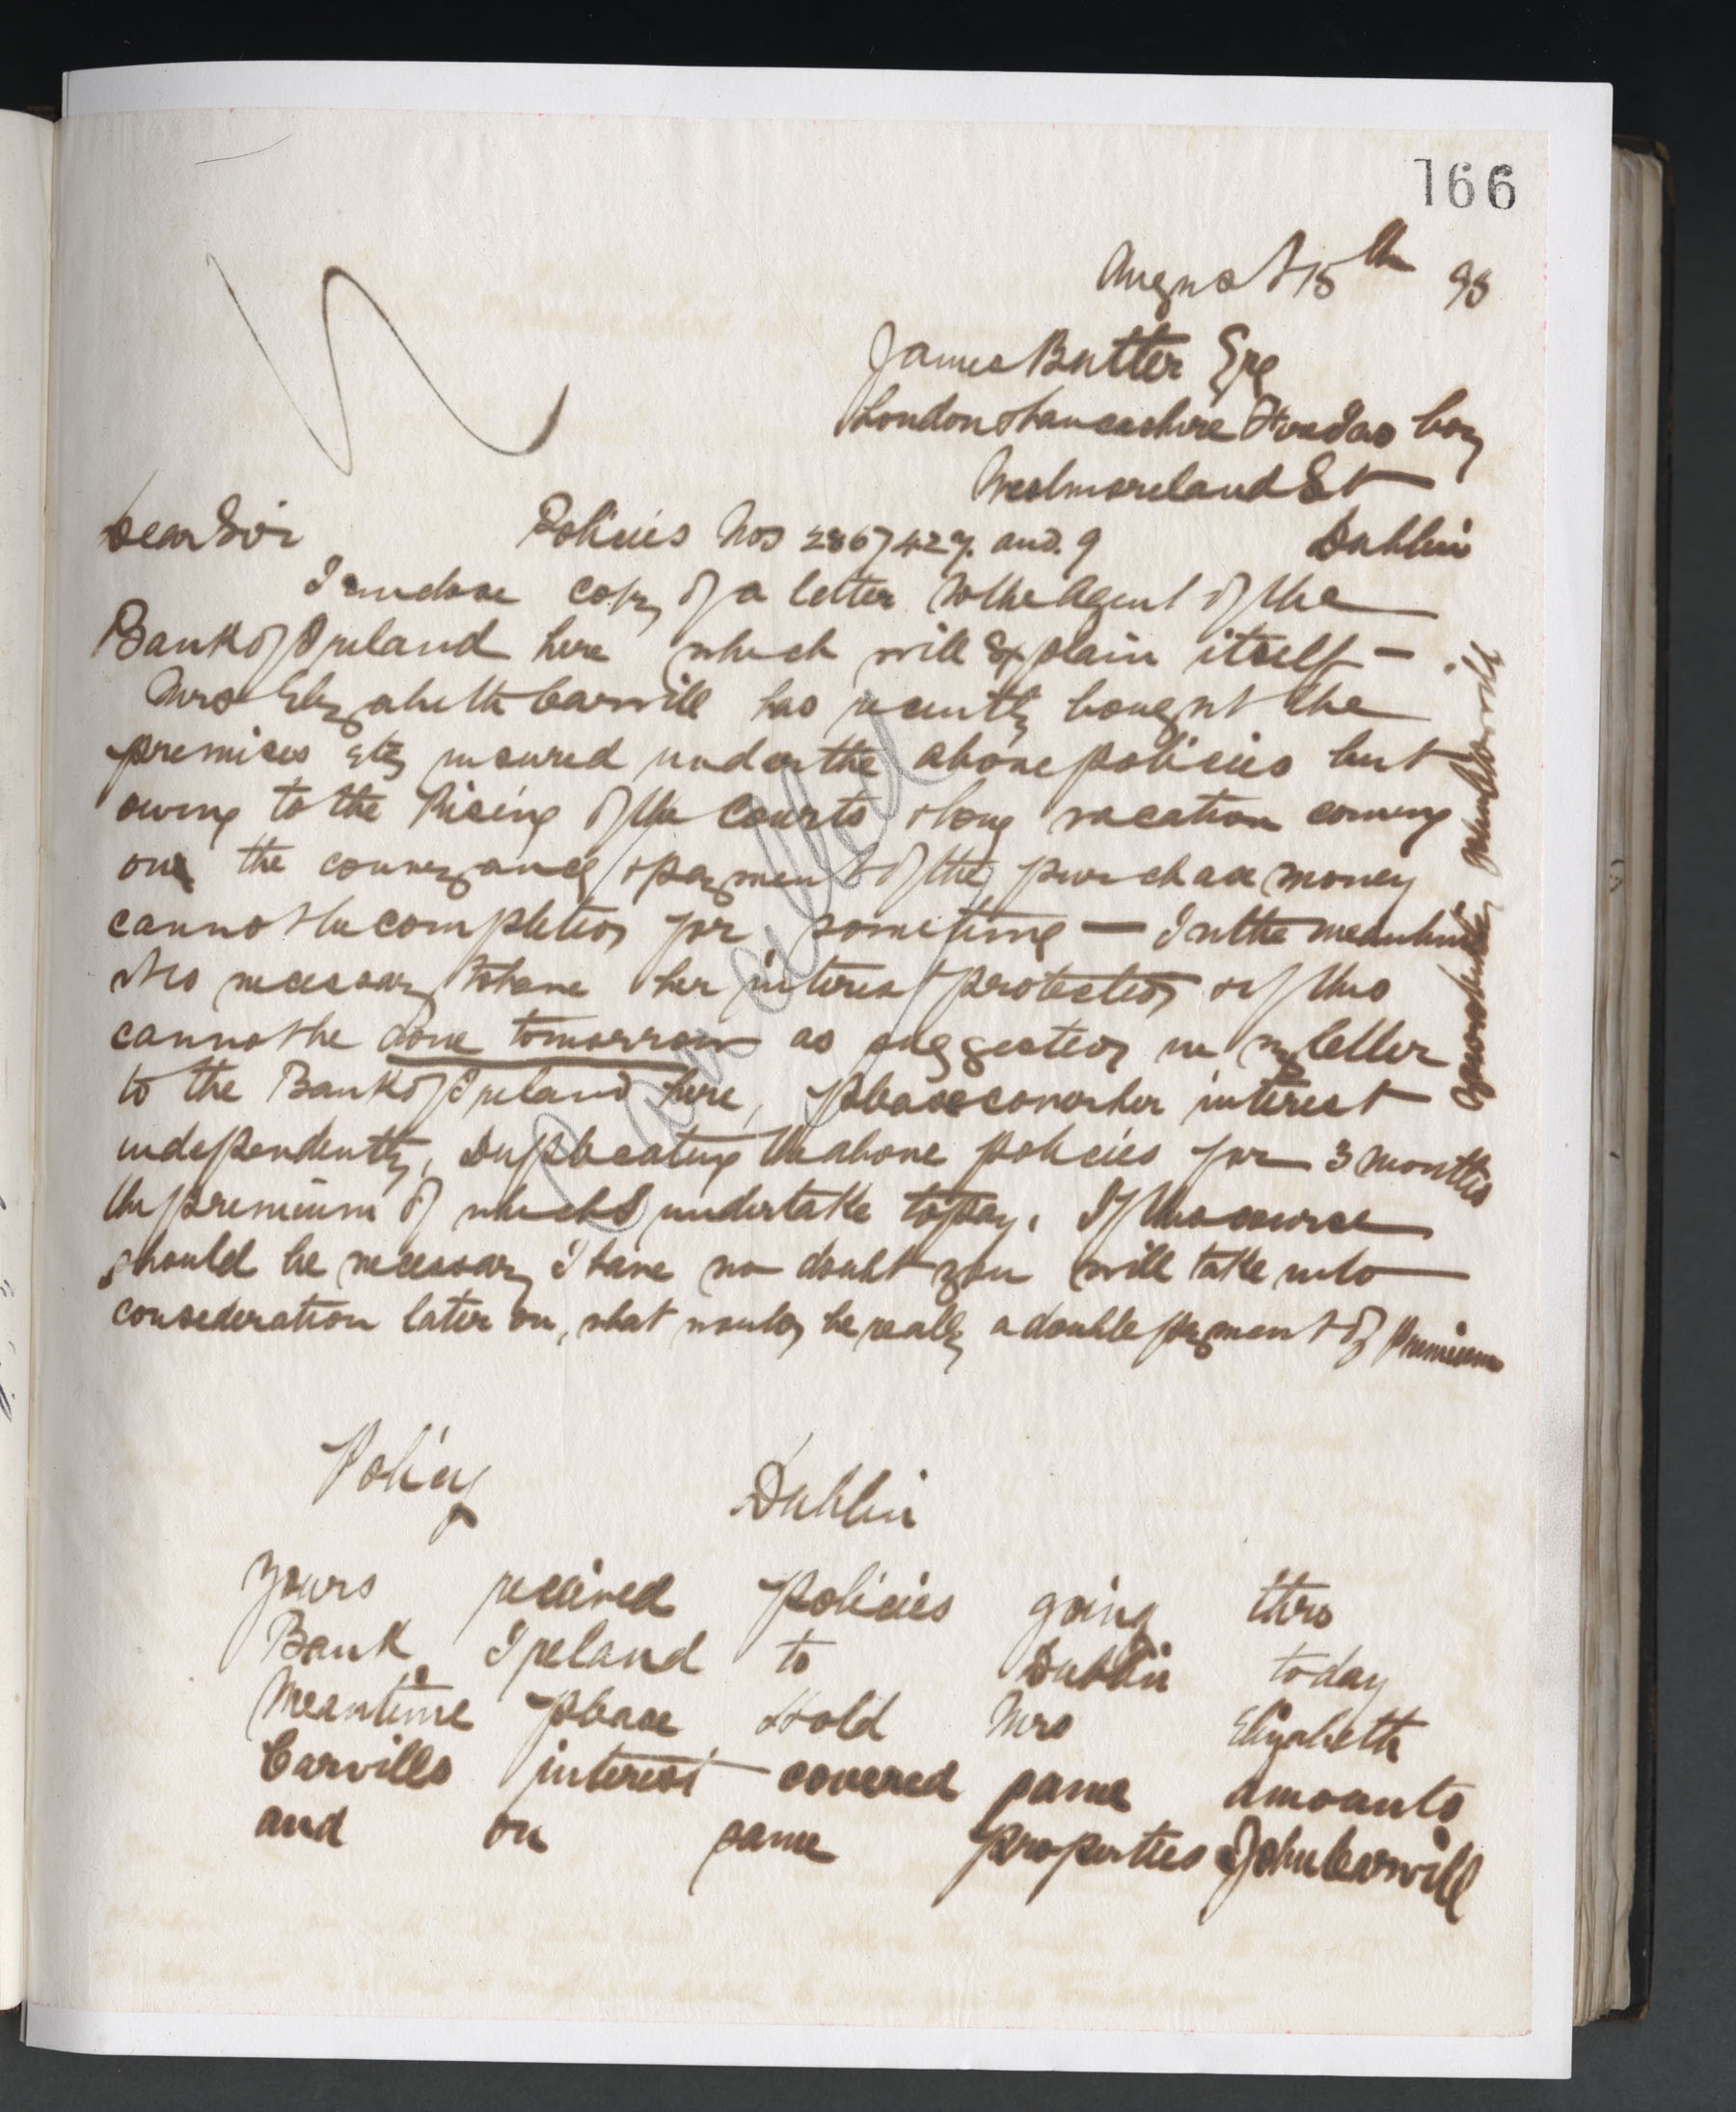 166
August 15th 98
James Butter Esq
London & Lancashire Fire Ins Coy
Westmoreland St
Dublin
Dear Sir Policies Nos 2867427. and. 9
I enclose copy of a letter to the Agent of the
Bank of Ireland here which will Explain itself -
Mrs Elizabeth Carvill has recently bought the
premises etc insured under the above policies but
owing to the Rising of the Courts & long vacation coming
on the conveyance & payment of the purchase money
cannot be completed for sometime — In the meantime
it is necessary to have her interest protected & if this
cannot be done tomorrow as suggested in my letter
to the Bank of Ireland here, please cover her interest
independently, Duplicating the above policies for 3 months
the premium of which I undertake to pay. If this course
should be necessary I have no doubt you will take into
consideration later on, what would be really a double payment of Premium
Yours truly John Carvill
Cancelled
Policy Dublin
Yours received policies going thro
Bank Ireland to Dublin today
Meantime please Hold Mrs Elizabeth
Carvills interest covered same amounts
and on same properties John Carvill